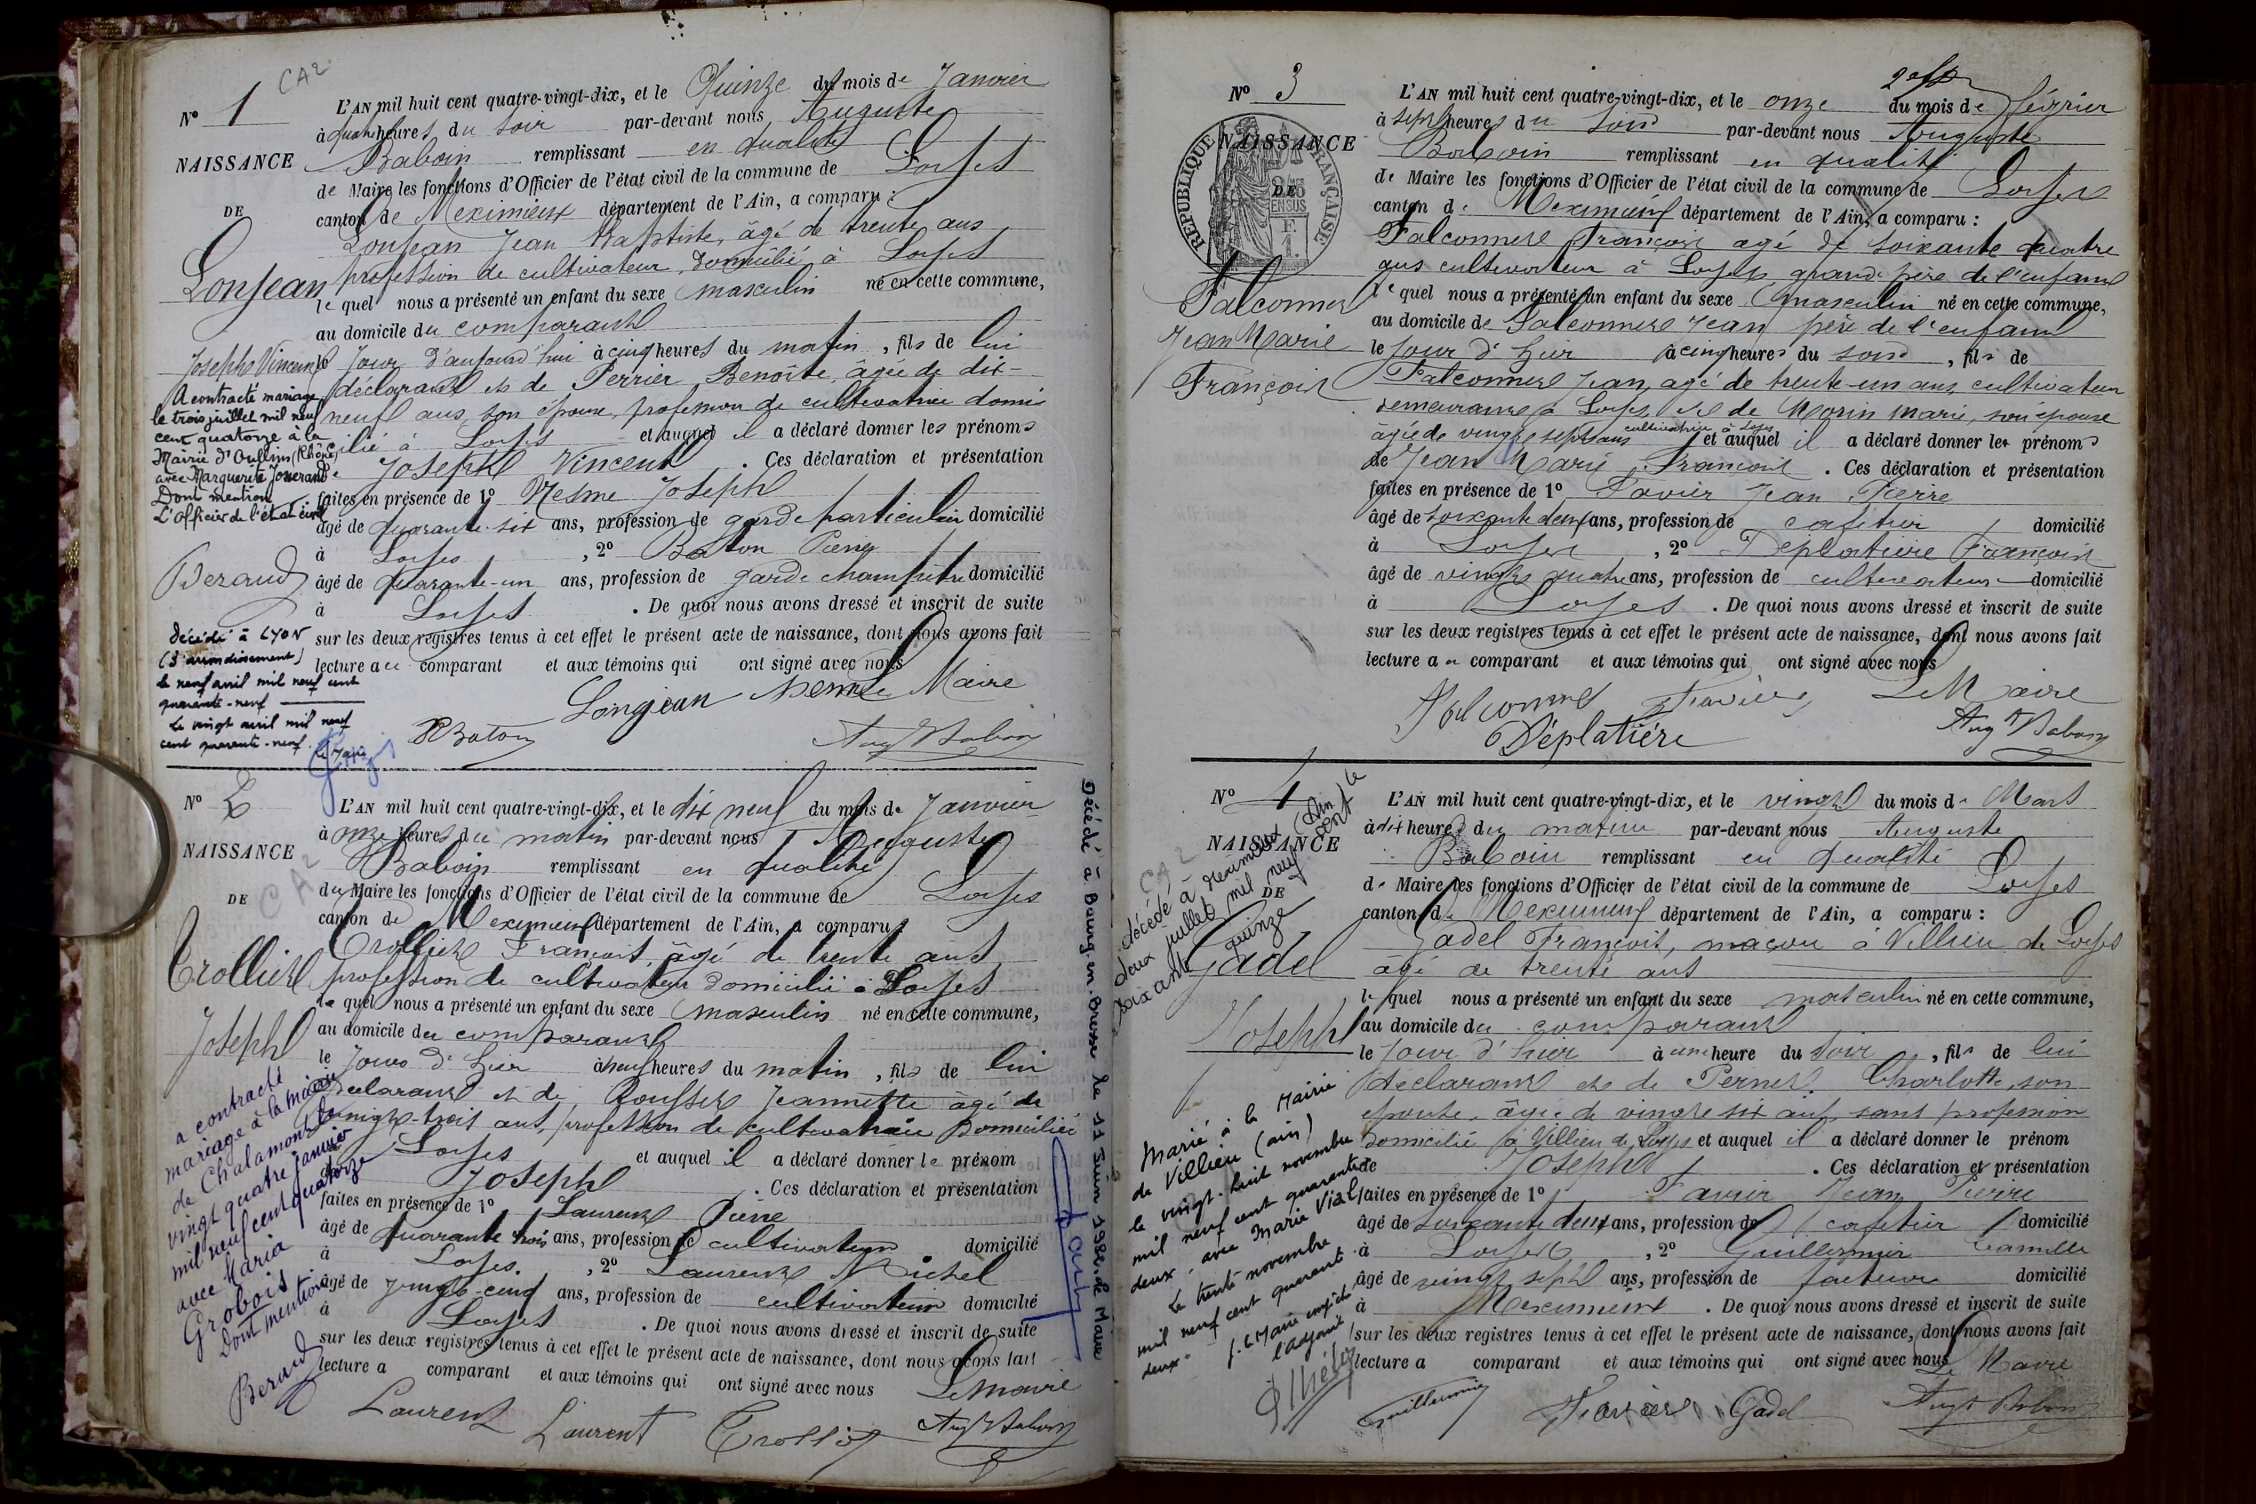 CA2
N° 1
NAISSANCE
DE
Lonjean
Joseph Vincent
L'AN mil huit cent quatre-vingt-dix, et le Quinze du mois de Janvier
à quatre heures du soir par-devant nous Auguste
Baboin remplissant en qualité
de Maire les fonctions d'Officier de l'état civil de la commune de Loyes
canton de Meximieux département de l'Ain, a comparu :
Lonjean Jean Baptiste, âgé de trente ans
profession de cultivateur, domicilié à Loyes
le quel nous a présenté un enfant du sexe masculin né en cette commune,
au domicile du comparant
le jour d'aujourd'hui à cinq heures du matin, fils de lui
déclarant et de Perrier Benoîte, âgée de dix-
neuf ans, son épouse, profession de cultivatrice domi
cilié à Loyes et auquel il a déclaré donner les prénoms
de Joseph Vincent. Ces déclaration et présentation
faites en présence de 1° Mesme Joseph
âgé de quarante-six ans, profession de garde particulier domicilié
à Loyes, 2° Baton Pierre
âgé de quarante-un ans, profession de garde champêtre domicilié
à Loyes. De quoi nous avons dressé et inscrit de suite
sur les deux registres tenus à cet effet le présent acte de naissance, dont nous avons fait
lecture au comparant et aux témoins qui ont signé avec nous
Lonjean Mesme Le Maire
P Baton Aug Baboin
A contracté mariage
le trois juillet mil neuf
cent quatorze à la
Mairie d'Oullins (Rhône)
avec Marguerite Jouerand
Dont mention
L'officier de l'état civil
Beraud
Décédé à LYON
(3 arrondissement)
le neuf avril mil neuf cent
quarante-neuf
Le vingt avril mil neuf
cent quarante-neuf.
Le Maire
N° 2
NAISSANCE
CA2
DE
Trollier
Joseph
L'AN mil huit cent quatre-vingt-dix, et le dix neuf du mois de Janvier
à onze heures du matin par-devant nous Auguste
Baboin remplissant en qualité
du Maire les fonctions d'Officier de l'état civil de la commune de Loyes
canton de Meximieux département de l'Ain, a comparu
Trollier François, âgé de trente ans
profession de cultivateur domicilié à Loyes
le quel nous a présenté un enfant du sexe masculin né en cette commune,
au domicile du comparant
le jour d'hier à neuf heures du matin, fils de lui
déclarant et de Rousset Jeannette âgé de
vingt-trois ans, profession de cultivatrice Domiciliée
à Loyes et auquel il a déclaré donner le prénom
de Joseph. Ces déclaration et présentation
faites en présence de 1° Laurent Pierre
âgé de quarante trois ans, profession de cultivateur domicilié
à Loyes, 2° Laurent Michel
âgé de vingt-cinq ans, profession de cultivateur domicilié
à Loyes. De quoi nous avons dressé et inscrit de suite
sur les deux registres tenus à cet effet le présent acte de naissance, dont nous avons fait
lecture a comparant et aux témoins qui ont signé avec nous Le Maire
Laurent Laurent Trollier Aug Baboin
a contracté
mariage à la mairie
de Chalamont le
vingt quatre janvier
mil neuf cent quatorze
avec Maria
Grobois
Dont mention
Beraud
Décédé à Bourg-en-Bresse le 11 Juin 1981. Le Maire
N° 3
NAISSANCE
DE
RÉPUBLIQUE FRANÇAISE
Falconnet
Jean Marie
François
L'AN mil huit cent quatre-vingt-dix, et le onze du mois de février
à sept heures du soir par-devant nous Auguste
Baboin remplissant en qualité
de Maire les fonctions d'Officier de l'état civil de la commune de Loyes
canton de Meximieux département de l'Ain, a comparu :
Falconnet François agé de soixante quatre
ans cultivateur à Loyes, grand-père de l'enfant
le quel nous a présenté un enfant du sexe masculin né en cette commune,
au domicile de Falconnet Jean père de l'enfant
le jour d'hier à cinq heures du soir, fils de
Falconnet Jean, agé de trente-un ans cultivateur
demeurant à Loyes et de Morin Marie, son épouse
cultivatrice à Loyes
âgée de vingt sept ans et auquel il a déclaré donner les prénoms
de Jean Marie François. Ces déclaration et présentation
faites en présence de 1° Favier Jean Pierre
âgé de soixante deux ans, profession de cafetier domicilié
à Loyes, 2° Déplatière François
âgé de vingt quatre ans, profession de cultivateur domicilié
à Loyes. De quoi nous avons dressé et inscrit de suite
sur les deux registres tenus à cet effet le présent acte de naissance, dont nous avons fait
lecture au comparant et aux témoins qui ont signé avec nous
Falconnet Favier Le Maire
Déplatière Aug Baboin
N° 4
NAISSANCE
DE
Gadel
Joseph
L'AN mil huit cent quatre-vingt-dix, et le vingt du mois de Mars
à dix heures du matin par-devant nous Auguste
Baboin remplissant en qualité
de Maire les fonctions d'Officier de l'état civil de la commune de Loyes
canton de Meximieux département de l'Ain, a comparu :
Gadel François, maçon à Villieu de Loyes
âgé de trente ans
le quel nous a présenté un enfant du sexe masculin né en cette commune,
au domicile du comparant
le jour d'hier à une heure du soir, fils de lui
déclarant et de Pernet Charlotte, son
épouse, âgée de vingt six ans, sans profession
domicilié à Villieu de Loyes et auquel il a déclaré donner le prénom
de Joseph. Ces déclaration et présentation
faites en présence de 1° Favier Jean Pierre
âgé de soixante deux ans, profession de cafetier domicilié
à Loyes, 2° Guillermin Camille
âgé de vingt sept ans, profession de facteur domicilié
à Meximieux. De quoi nous avons dressé et inscrit de suite
sur les deux registres tenus à cet effet le présent acte de naissance, dont nous avons fait
lecture a comparant et aux témoins qui ont signé avec nous Le Maire
Guillermin Favier Gadel Aug Baboin
CA2
décédé à Meximieux (Ain) le
deux juillet mil neuf cent
soixante quinze
Marié à la Mairie
de Villieu (ain)
le vingt-huit novembre
mil neuf cent quarante
deux, avec Marie Vial
Le trente novembre
mil neuf cent quarante
deux
l'adjoint